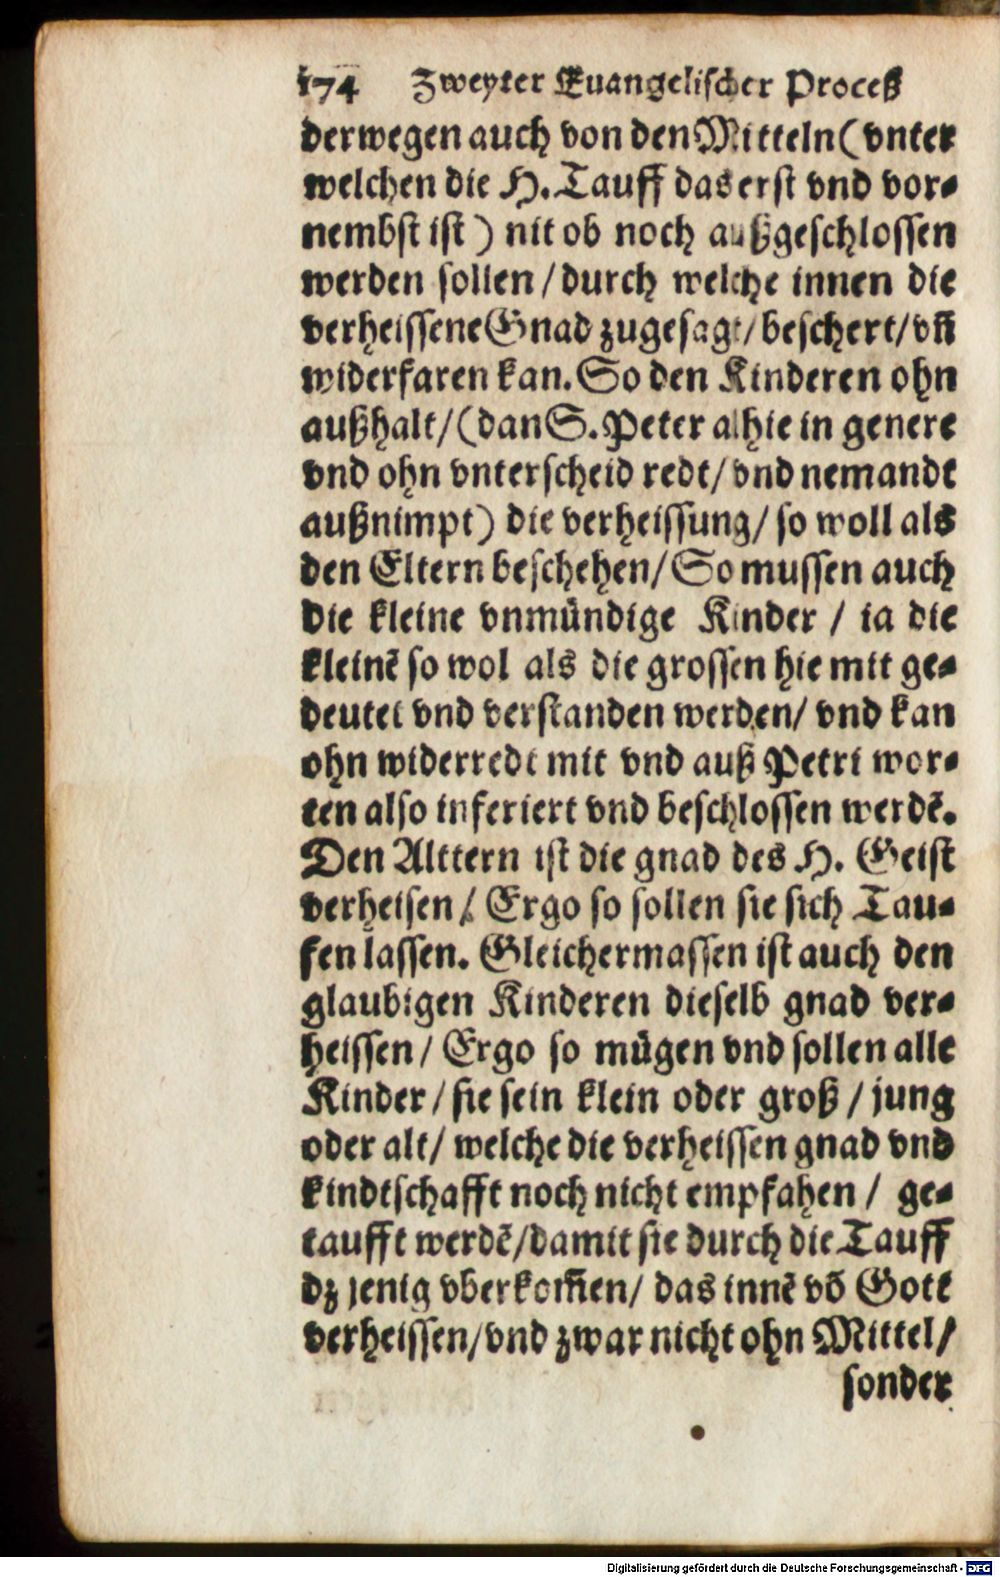 174 Zweyter Euangelischer Proceß
derwegen auch von den Mitteln (vnter
welchen die H. Tauff das erst vnd vor-
nembst ist) nit ob noch außgeschlossen
werden sollen / durch welche innen die
verheissene Gnad zugesagt / beschert / vñ
widerfaren kan. So den Kinderen ohn
außhalt / (dan S. Peter alhie in genere
vnd ohn vnterscheid redt / vnd nemandt
außnimpt) die verheissung / so woll als
den Eltern beschehen / So mussen auch
die kleine vnmündige Kinder / ia die
kleinē so wol als die grossen hie mit ge-
deutet vnd verstanden werden / vnd kan
ohn widerredt mit vnd auß Petri wor-
ten also inferiert vnd beschlossen werdē.
Den Alttern ist die gnad des H. Geist
verheisen / Ergo so sollen sie sich Tau-
fen lassen. Gleichermassen ist auch den
glaubigen Kinderen dieselb gnad ver-
heissen / Ergo so mügen vnd sollen alle
Kinder / sie sein klein oder groß / jung
oder alt / welche die verheissen gnad vnd
kindtschafft noch nicht empfahen / ge-
taufft werdē / damit sie durch die Tauff
dz jenig vberkom̃en / das innē võ Gott
verheissen / vnd zwar nicht ohn Mittel /
sonder
Digitalisierung gefördert durch die Deutsche Forschungsgemeinschaft - DFG